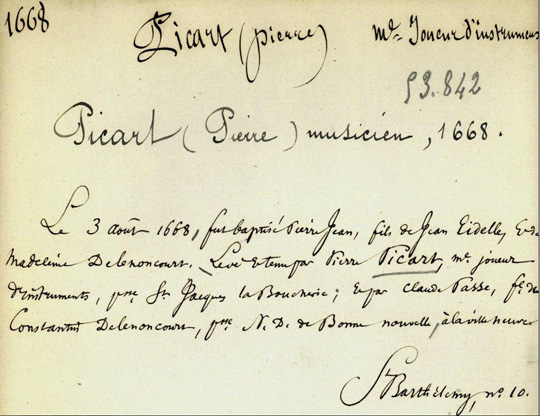 1668
Picart (pierre) md. Joueur d'instrumens
53.842
Picart (Pierre) musicien, 1668.
Le 3 août 1668, fut baptisé Pierre Jean, fils de Jean Eidelle, & de
Madeleine Delenoncourt. Levé & tenu par Pierre Picart, me. joueur
d'instruments, psse. St. Jacques la Boucherie; & par Claude Passe, fe. de
Constantin Delenoncourt, psse. N. D. de Bonne nouvelle, à la ville neuve
St Barthélemy, no. 10.